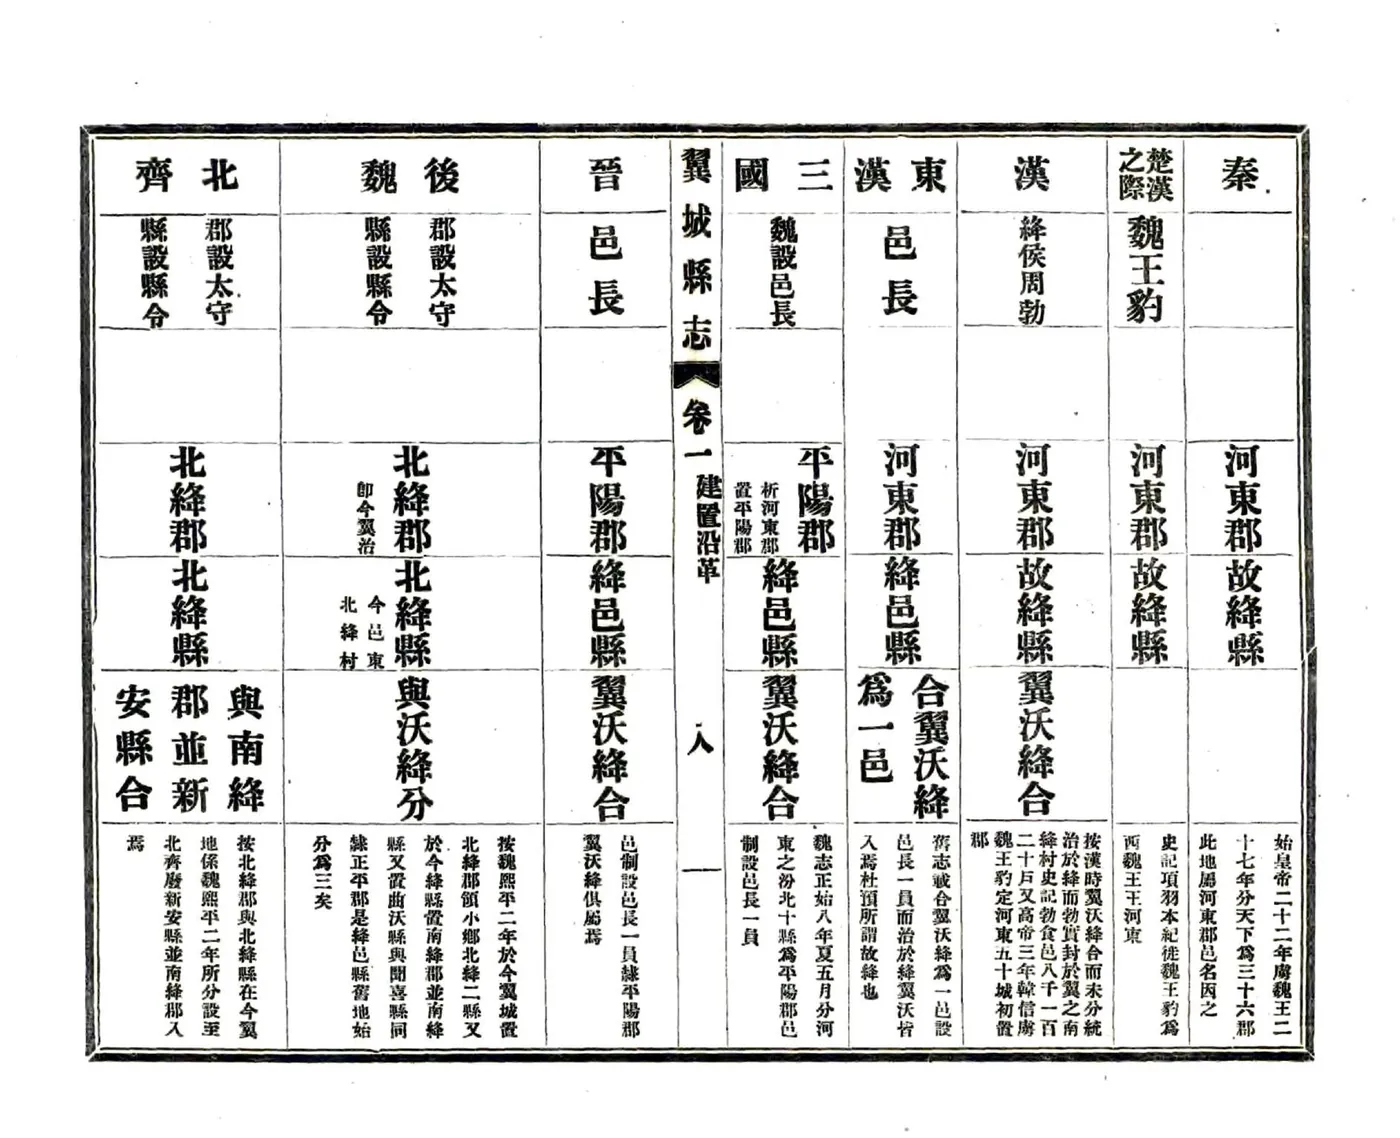 秦
河東郡
故絳縣
始皇帝二十二年虜魏王二
十七年分天下爲三十六郡
此地屬河東郡邑名因之
楚漢
之際
魏王豹
河東郡
故絳縣
史記項羽本紀徙魏王豹爲
西魏王王河東
漢
絳侯周勃
河東郡
故絳縣
翼沃絳合
按漢時翼沃絳合而未分統
治於絳而勃實封於翼之南
絳村史記勃食邑八千一百
二十戶又高帝三年韓信虜
魏王豹定河東五十城初置
郡
東漢
邑長
河東郡
絳邑縣
合翼沃絳
爲一邑
舊志載合翼沃絳爲一邑設
邑長一員而治於絳翼沃皆
入焉杜預所謂故絳也
三國
魏設邑長
平陽郡
析河東郡
置平陽郡
絳邑縣
翼沃絳合
魏志正始八年夏五月分河
東之汾北十縣爲平陽郡邑
制設邑長一員
翼城縣志
卷一
建置沿革
八
晉
邑長
平陽郡
絳邑縣
翼沃絳合
邑制設邑長一員隸平陽郡
翼沃絳俱屬焉
後魏
郡設太守
縣設縣令
北絳郡
卽今翼治
北絳縣
今邑東
北絳村
與沃絳分
按魏熙平二年於今翼城置
北絳郡領小鄉北絳二縣又
於今絳縣置南絳郡並南絳
縣又置曲沃縣與聞喜縣同
隸正平郡是絳邑縣舊地始
分爲三矣
北齊
郡設太守
縣設縣令
北絳郡
北絳縣
與南絳
郡並新
安縣合
按北絳郡與北絳縣在今翼
地係魏熙平二年所分設至
北齊廢新安縣並南絳郡入
焉